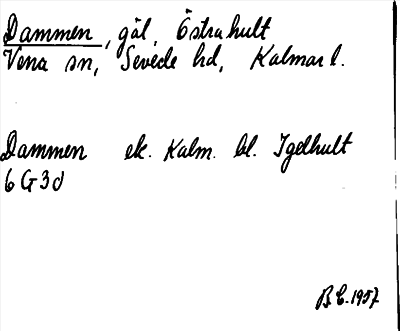 Dammen, gäl, Östrahult
Vena sn, Sevede hd, Kalmar l.
Dammen ek. Kalm. bl. Igelhult
6 G 3 d
B.E. 1957